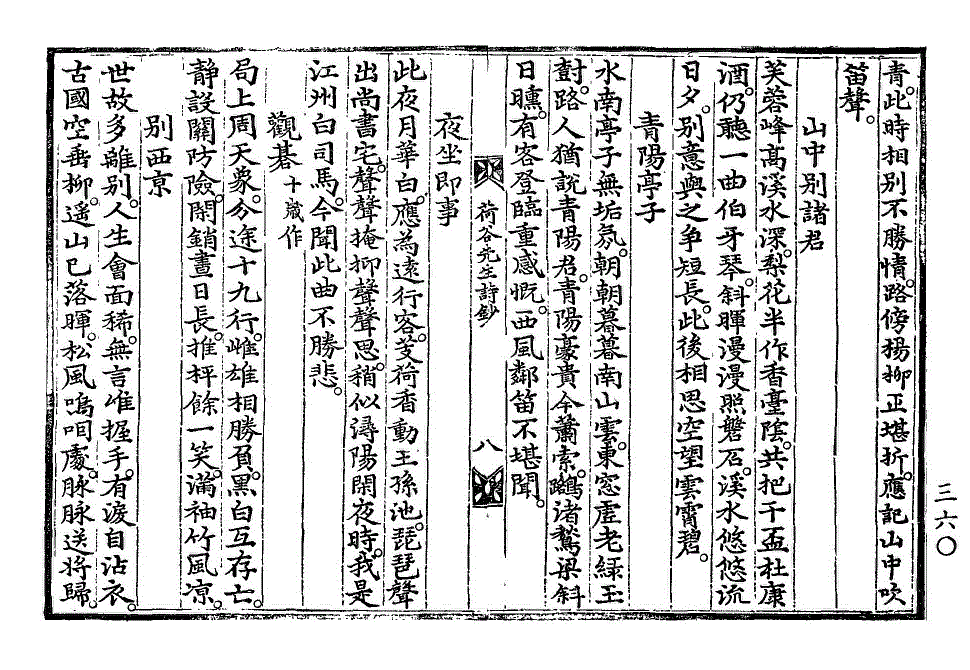 青。此時相別不勝情。路傍楊柳正堪折。應記山中吹
笛聲。
山中別諸君
芙蓉峰高溪水深。梨花半作香臺陰。共把千盃杜康
酒。仍聽一曲伯牙琴。斜暉漫漫照磐石。溪水悠悠流
日夕。別意與之爭短長。此後相思空望雲霄碧。
青陽亭子
水南亭子無垢氛。朝朝暮暮南山雲。東窓虛老綠玉
樹。路人猶說青陽君。青陽豪貴今蕭索。鷁渚鶖梁斜
日曛。有客登臨重感慨。西風鄰笛不堪聞。
荷谷先生詩鈔
八
夜坐即事
此夜月華白。應為遠行客。芰荷香動王孫池。琵琶聲
出尚書宅。聲聲掩抑聲聲思。稍似潯陽閑夜時。我是
江州白司馬。今聞此曲不勝悲。
觀碁 十歲作
局上周天象。分途十九行。雌雄相勝負。黑白互存亡。
靜設關防險。閑銷晝日長。推枰餘一笑。滿袖竹風凉。
別西京
世故多離別。人生會面稀。無言惟握手。有淚自沾衣。
古國空垂柳。遙山已落暉。松風嗚咽處。脉脉送將歸。
三六〇